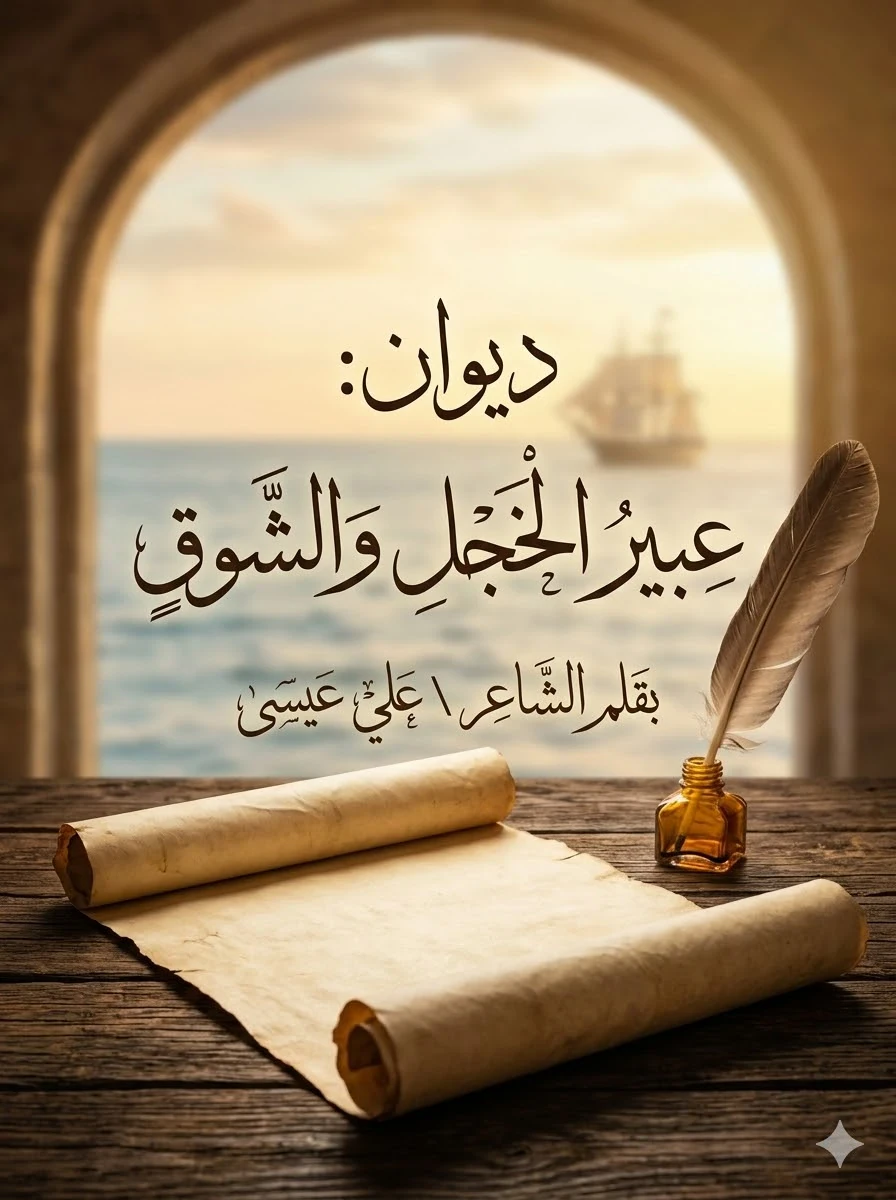 ديوان:
عِبيرُ الْخَجْلِ وَالشَّوقٍ
بقَلم الشَّاعِر \ عَليْ عَيسَىٰ